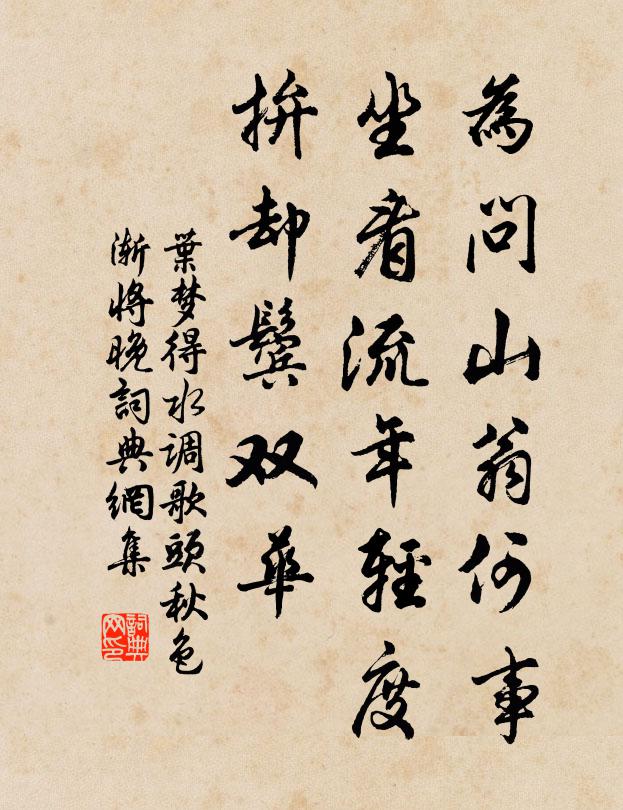 為問山翁何事
坐看流年輕度
拚却鬢双華
葉梦得水调歌頭秋色
漸將晚詞典網集
詞典
网印